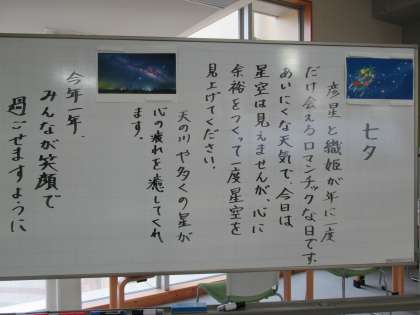 七夕
彦星と織姫が年に一度
だけ会えるロマンチックな日です。
あいにくな天気で、今日は
星空は見えませんが、心に
余裕をつくって一度星空を
見上げてください。
天の川や多くの星が
心の疲れを癒してくれ
ます。
今年一年、
みんなが笑顔で
過ごせますように